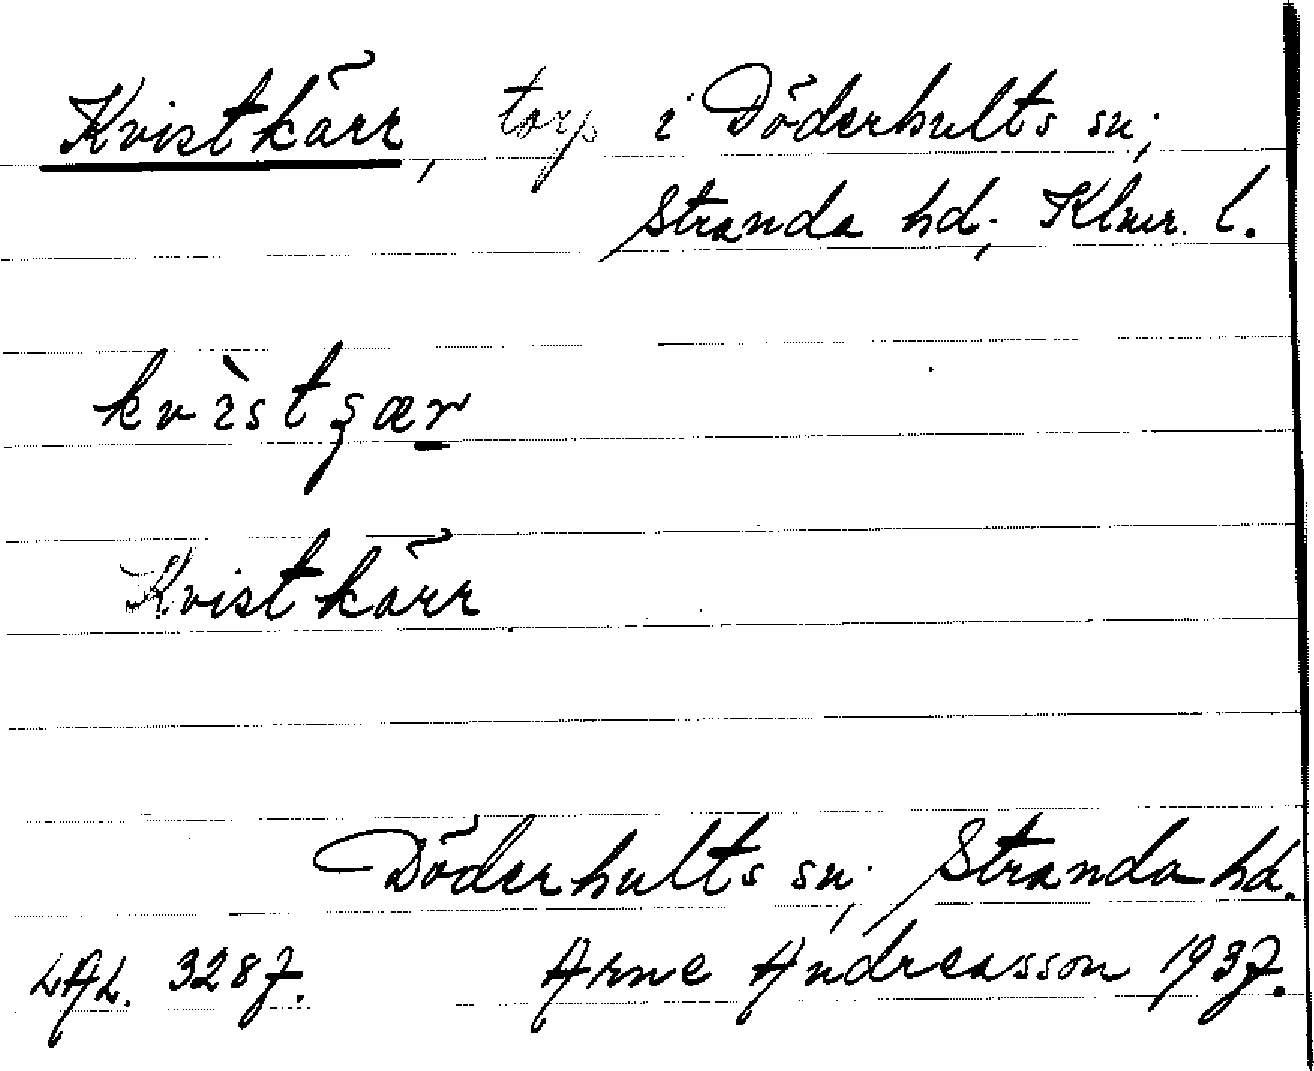 Kvistkärr, torp i Döderhults sn;
Stranda hd; Klmr. l.
kvìstʂær
Kvistkärr
Döderhults sn; Stranda hd.
LAL. 3287. Arne Andreasson 1937.